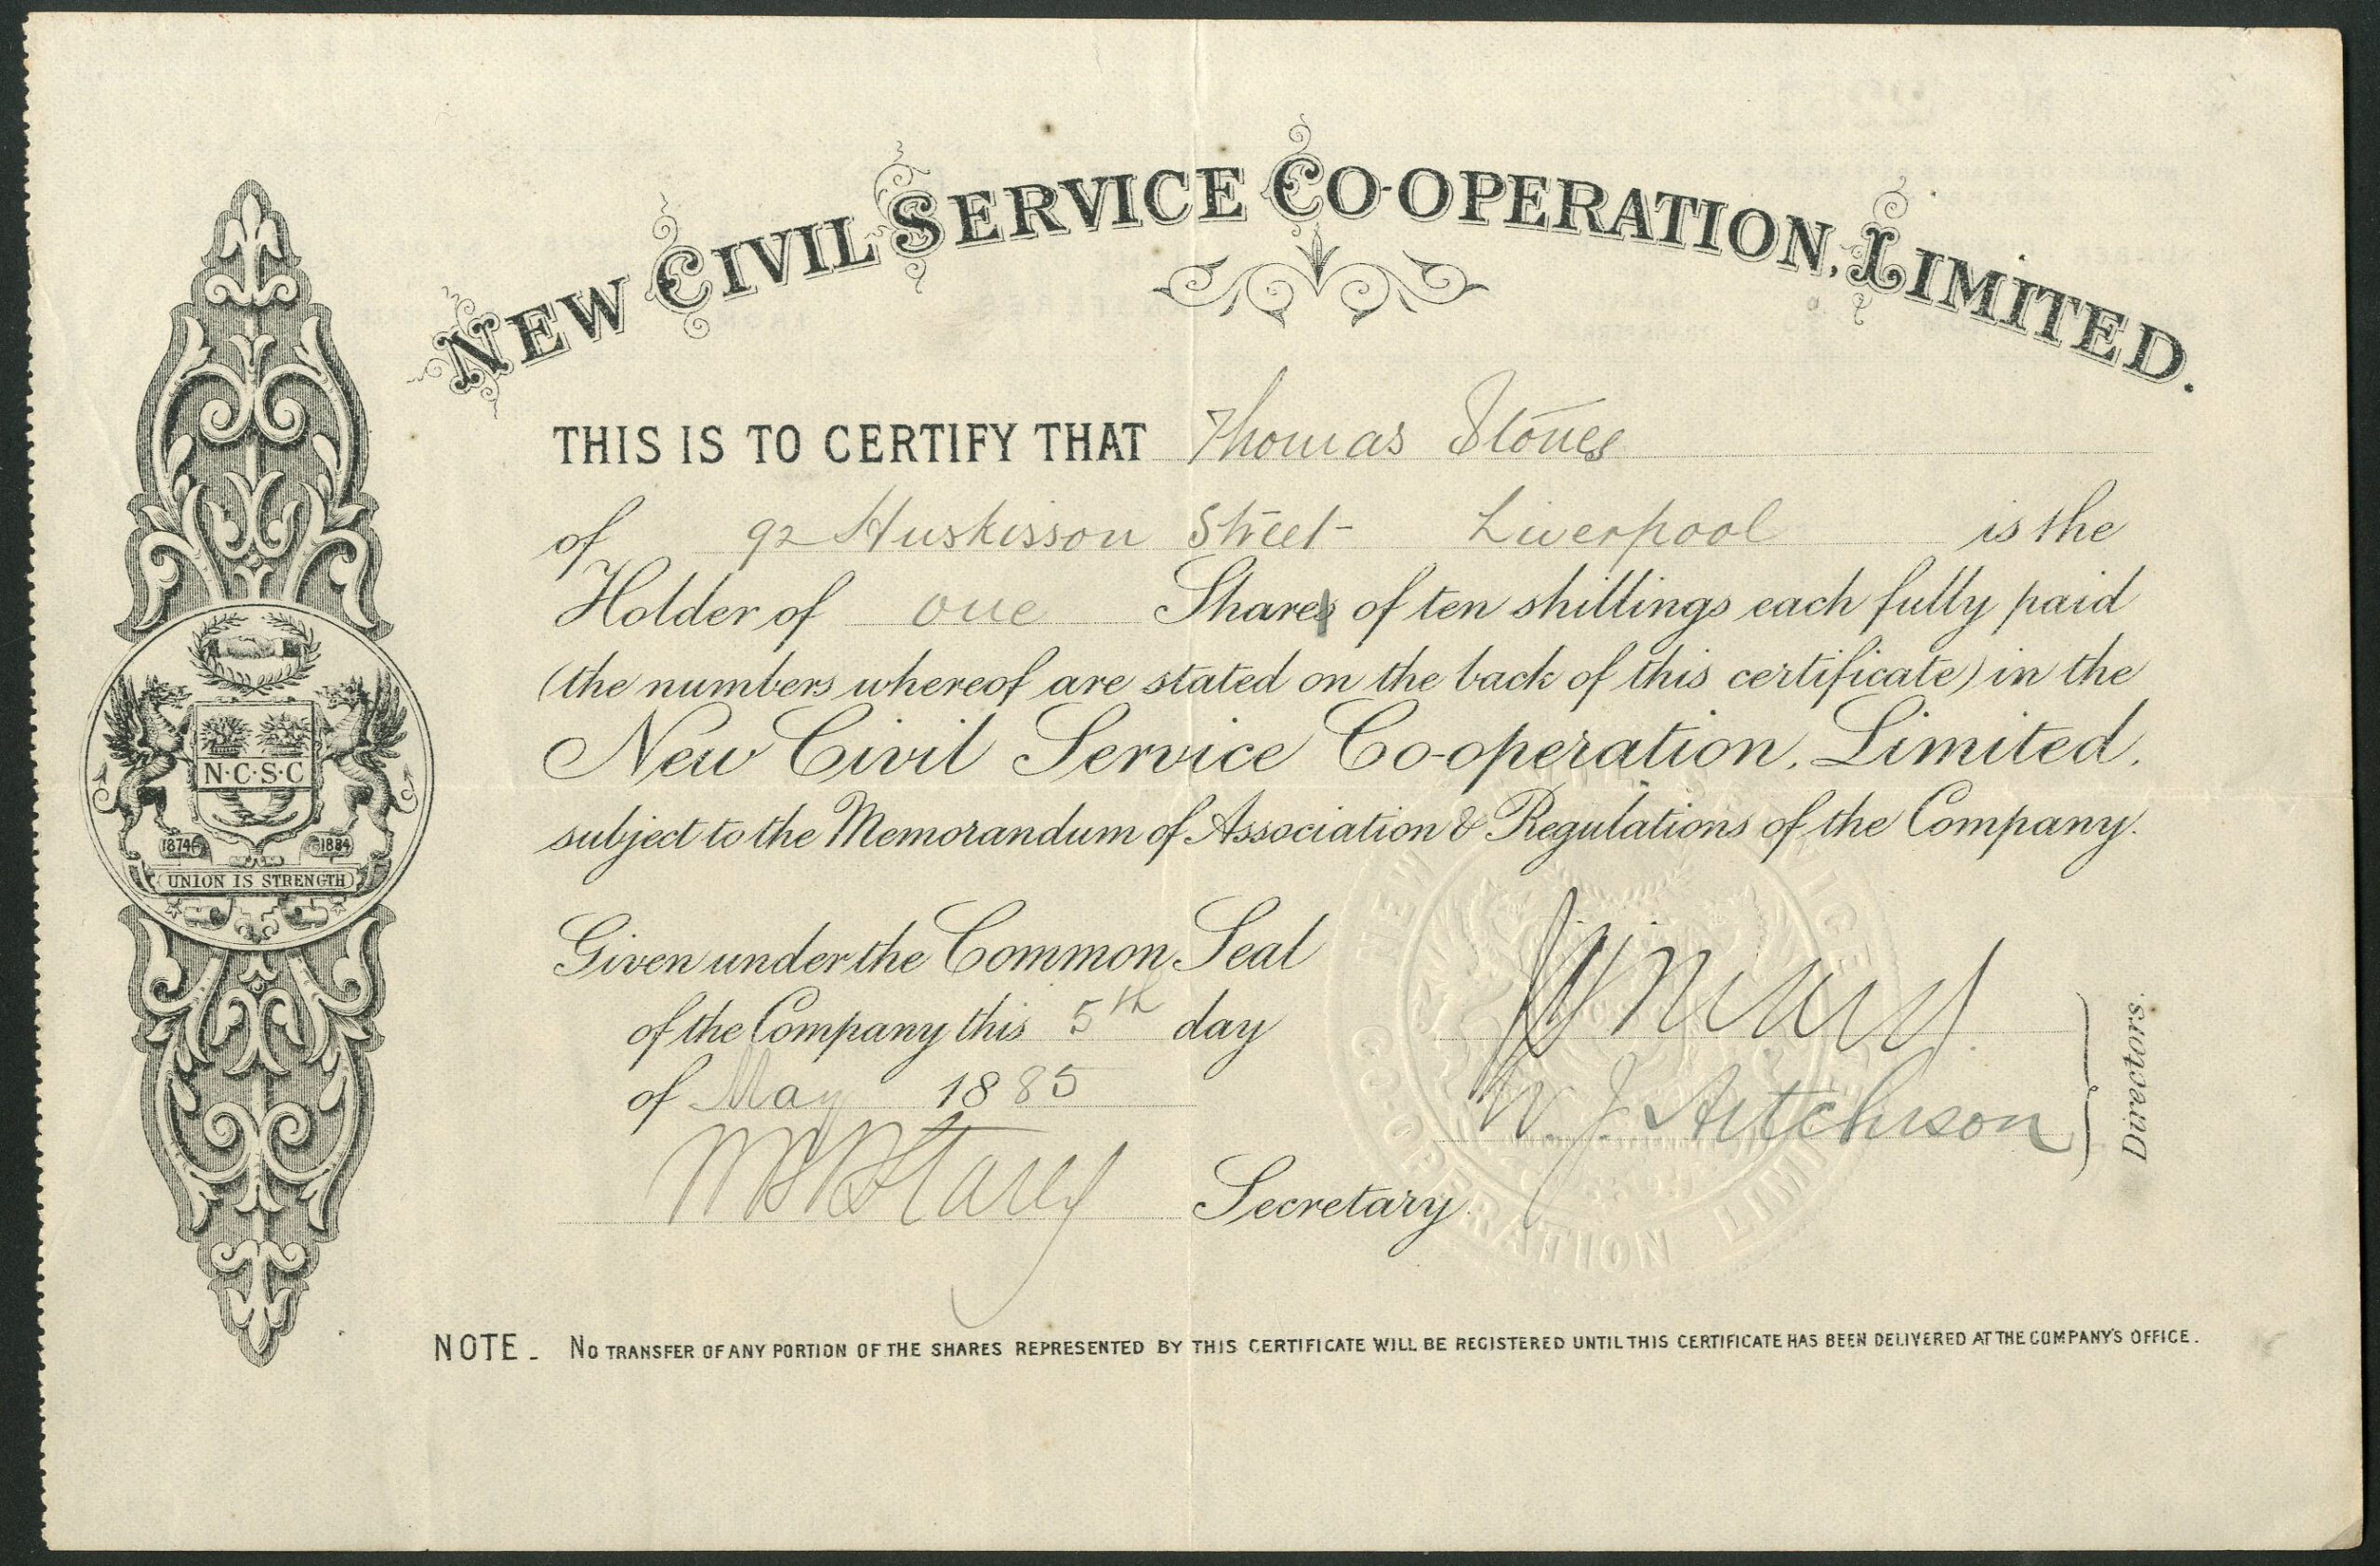 NEW CIVIL SERVICE CO-OPERATION, LIMITED.
THIS IS TO CERTIFY THAT Thomas Stones
of 92 Huskisson Street Liverpool is the
Holder of one Shares of ten shillings each fully paid
(the numbers whereof are stated on the back of this certificate) in the
New Civil Service Co-operation, Limited,
subject to the Memorandum of Association & Regulations of the Company.
N·C·S·C
1874 1884
UNION IS STRENGTH
Given under the Common Seal
of the Company this 5th day
of May 1885
Secretary
W. J. Aitchison
Directors.
NEW CIVIL SERVICE CO-OPERATION LIMITED
NOTE. NO TRANSFER OF ANY PORTION OF THE SHARES REPRESENTED BY THIS CERTIFICATE WILL BE REGISTERED UNTIL THIS CERTIFICATE HAS BEEN DELIVERED AT THE COMPANY'S OFFICE.